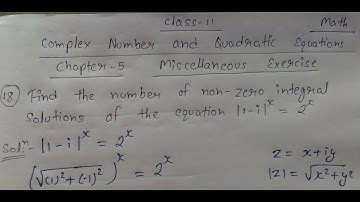 Class-11 Math
Complex Number and Quadratic Equations
Chapter-5 Miscellaneous Exercise
18) Find the number of non-zero integral
solutions of the equation |1-i|^x = 2^x
Solⁿ:- |1-i|^x = 2^x
z = x+iy
(√(1)²+(-1)²)^x = 2^x
|z| = √x²+y²